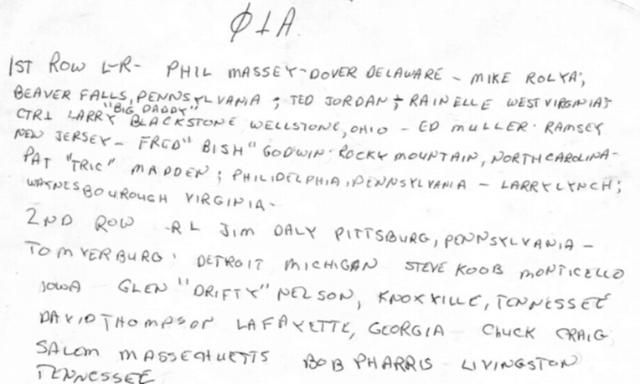 Φ1A
1ST ROW L-R- PHIL MASSEY-DOVER DELAWARE - MIKE ROLYA;
BEAVER FALLS, PENNSYLVANIA ; TED JORDAN; RAINELLE WEST VIRGINIA;
CTR1 LARRY "BIG DADDY" BLACKSTONE WELLSTONE, OHIO - ED MULLER. RAMSEY
NEW JERSEY - FRED "BISH" GODWIN. ROCKY MOUNTAIN, NORTH CAROLINA-
PAT "TRIC" MADDEN ; PHILIDELPHIA, PENNSYLVANIA - LARRY LYNCH;
WAYNESBOUROUGH VIRGINIA-
2ND ROW -RL JIM DALY PITTSBURG, PENNSYLVANIA -
TOM VERBURG. DETROIT MICHIGAN STEVE KOOB MONTICELLO
IOWA - GLEN "DRIFTY" NELSON, KNOXVILLE, TENNESSEE
DAVID THOMPSON LAFAYETTE, GEORGIA - CHUCK CRAIG
SALEM MASSECHUETTS BOB PHARRIS - LIVINGSTON
TENNESSEE